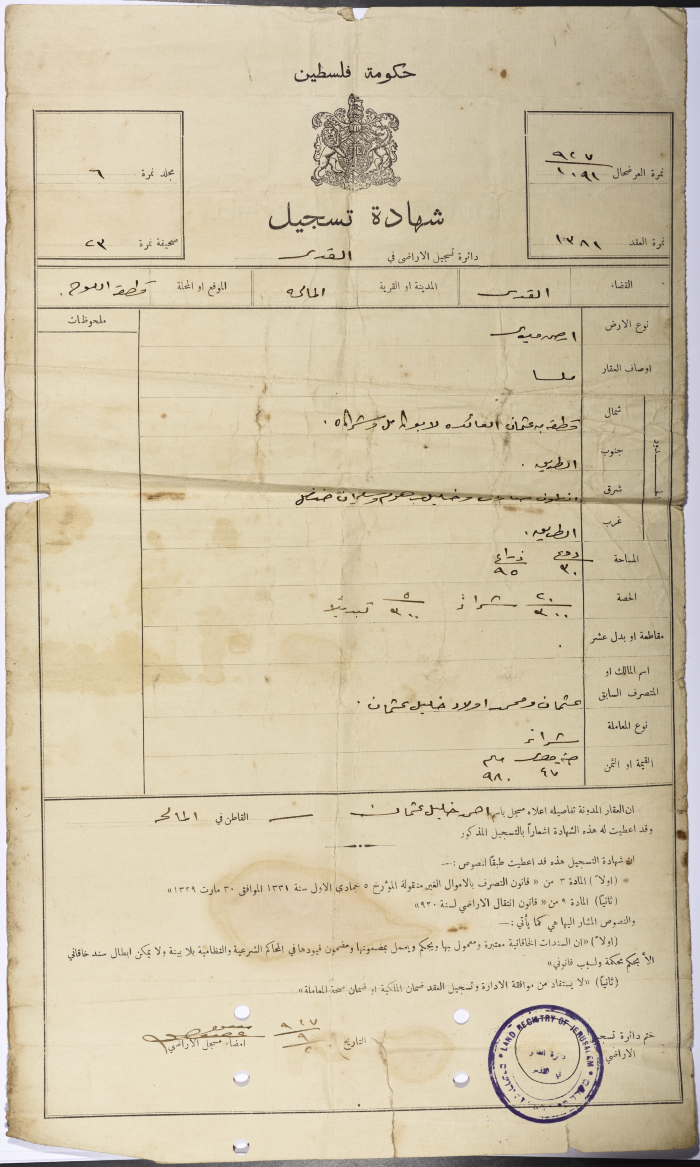 حكومة فلسطين
نمرة العرضحال ٩٢٧ / ١٠٩٢
مجلد نمرة ٦
شهادة تسجيل
نمرة العقد ١٣٨٢
صحيفة نمرة ٢٣
دائرة تسجيل الاراضي في القدس
القضاء القدس المدينة او القرية المالحه الموقع او المحلة قطعة اللوح
ملحوظات
نوع الارض ارض ميرى
اوصاف العقار ملسا
حدود
شمال قطعة عثمان العائده لابو كامل وشركاه
جنوب الطريق
شرق وخليل
غرب الطريق
المساحة دونم ٣٠ ذراع ٩٥
الحصة ٢٠ / ٣٠٠ شراءً ٥ / ٣٠٠ تبديلا
مقاطعة او بدل عشر
اسم المالك او
المتصرف السابق عثمان ومحمد اولاد خليل عثمان
نوع المعاملة شراء
القيمة او الثمن جنيه مصرى ٤٧ مليم ٩٨٠
ان العقار المدونة تفاصيله اعلاه مسجل باسم احمد خليل عثمان القاطن في المالحه
وقد اعطيت له هذه الشهادة اشعاراً بالتسجيل المذكور
ان شهادة التسجيل هذه قد اعطيت طبقاً لنصوص :—
(اولاً) المادة ٣ من « قانون التصرف بالاموال الغير منقولة المؤرخ ٥ جمادي الاول سنة ١٣٣١ الموافق ٣٠ مارت ١٣٢٩»
(ثانياً) المادة ٩ من « قانون انتقال الاراضي لسنة ٩٢٠»
والنصوص المشار اليها هي كما يأتي :—
(اولاً) «ان السندات الخاقانية معتبرة ومعمول بها ويحكم ويعمل بمضمونها ومضمون قيودها في المحاكم الشرعية والنظامية بلا بينة ولا يمكن ابطال سند خاقاني
الا بحكم محكمة ولسبب قانوني»
(ثانياً) «لا يستفاد من موافقة الادارة وتسجيل العقد ضمان الملكية او ضمان صحة المعاملة»
ختم دائرة تسجيل
الاراضي
LAND REGISTRY OF JERUSALEM
التاريخ ٩٢٧ / ٩ / ٥
امضاء مسجل الاراضي